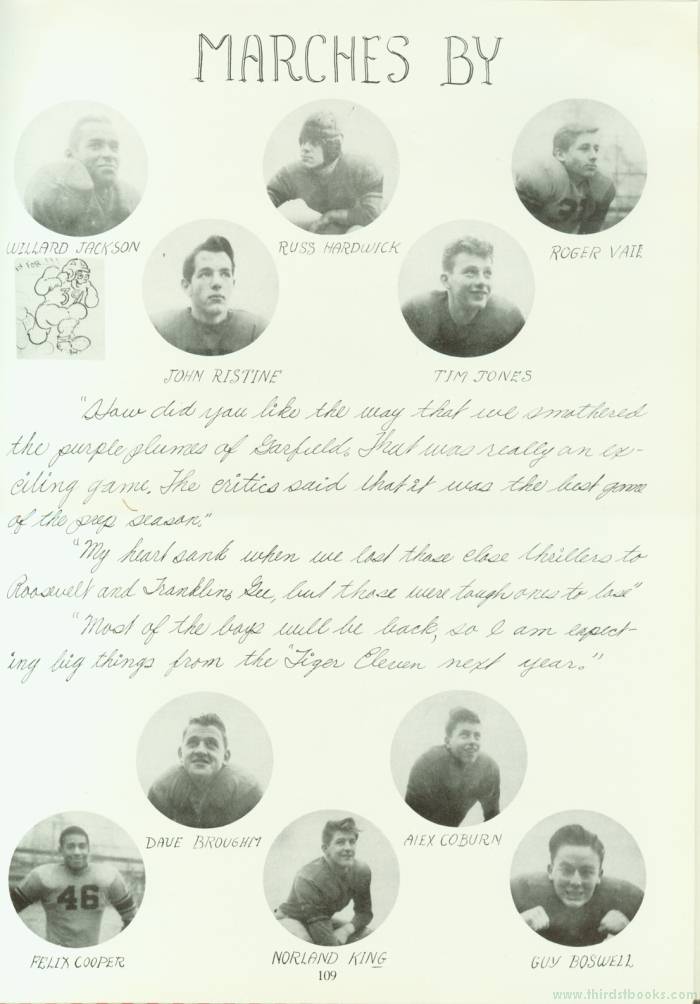 MARCHES BY
WILLARD JACKSON
RUSS HARDWICK
ROGER VAIL
JOHN RISTINE
TIM JONES
"How did you like the way that we smothered
the purple plumes of Garfield. That was really an ex-
citing game. The critics said that it was the best game
of the prep season."
"My heart sank when we lost those close thrillers to
Roosevelt and Franklin, Gee, but those were tough ones to lose"
"Most of the boys will be back, so I am expect-
ing big things from the "Tiger Eleven next year."
DAVE BROUGHM
ALEX COBURN
46
FELIX COOPER
NORLAND KING
GUY BOSWELL
109
www.thirdstbooks.com